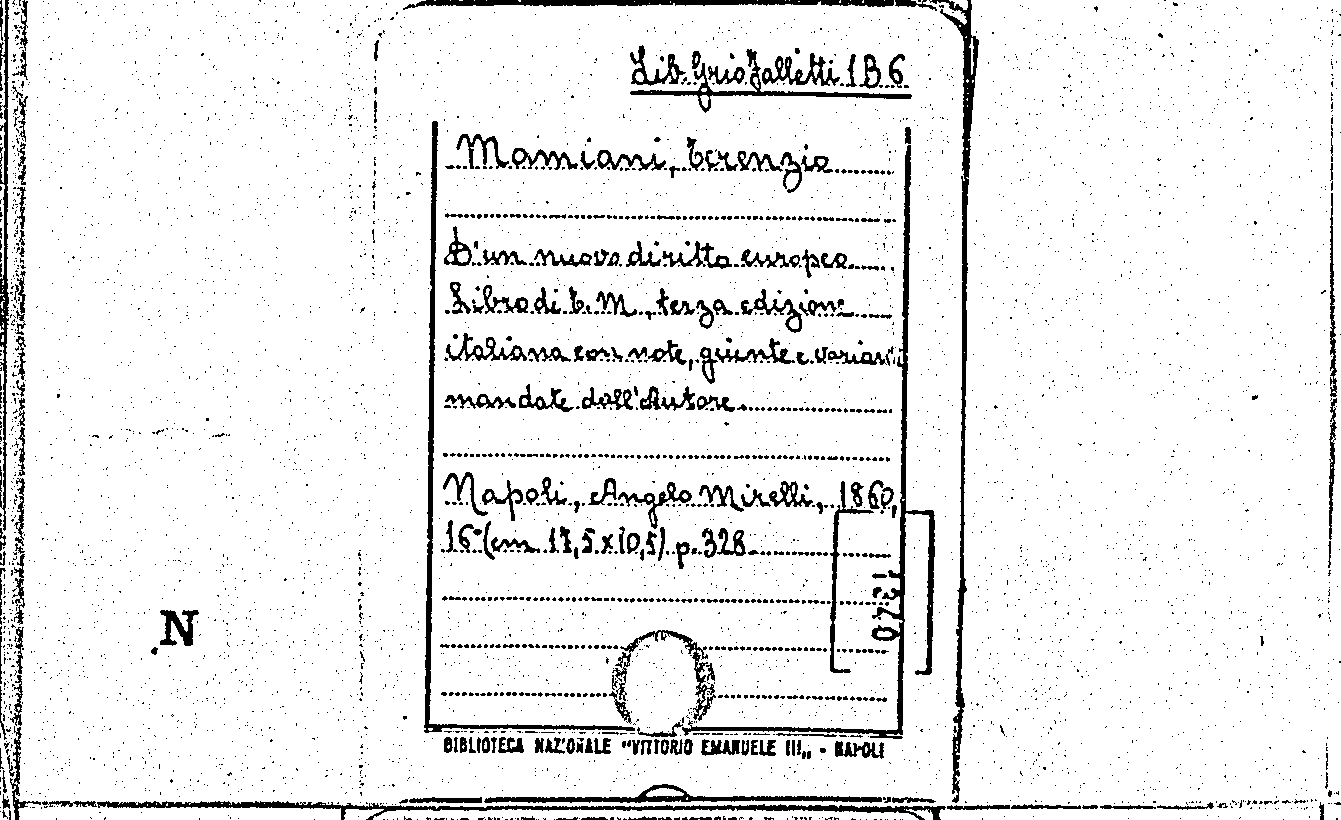 Lib. Grio Falletti 1 B 6
Mamiani, Terenzio
D'un nuovo diritto europeo.
Libro di T. M., terza edizione
italiana con note, giunte e varianti
mandate dall'Autore.
Napoli, Angelo Mirelli, 1860,
16° (cm 17,5 x 10,5) p. 328
1340
N
BIBLIOTECA NAZIONALE "VITTORIO EMANUELE III„ - NAPOLI